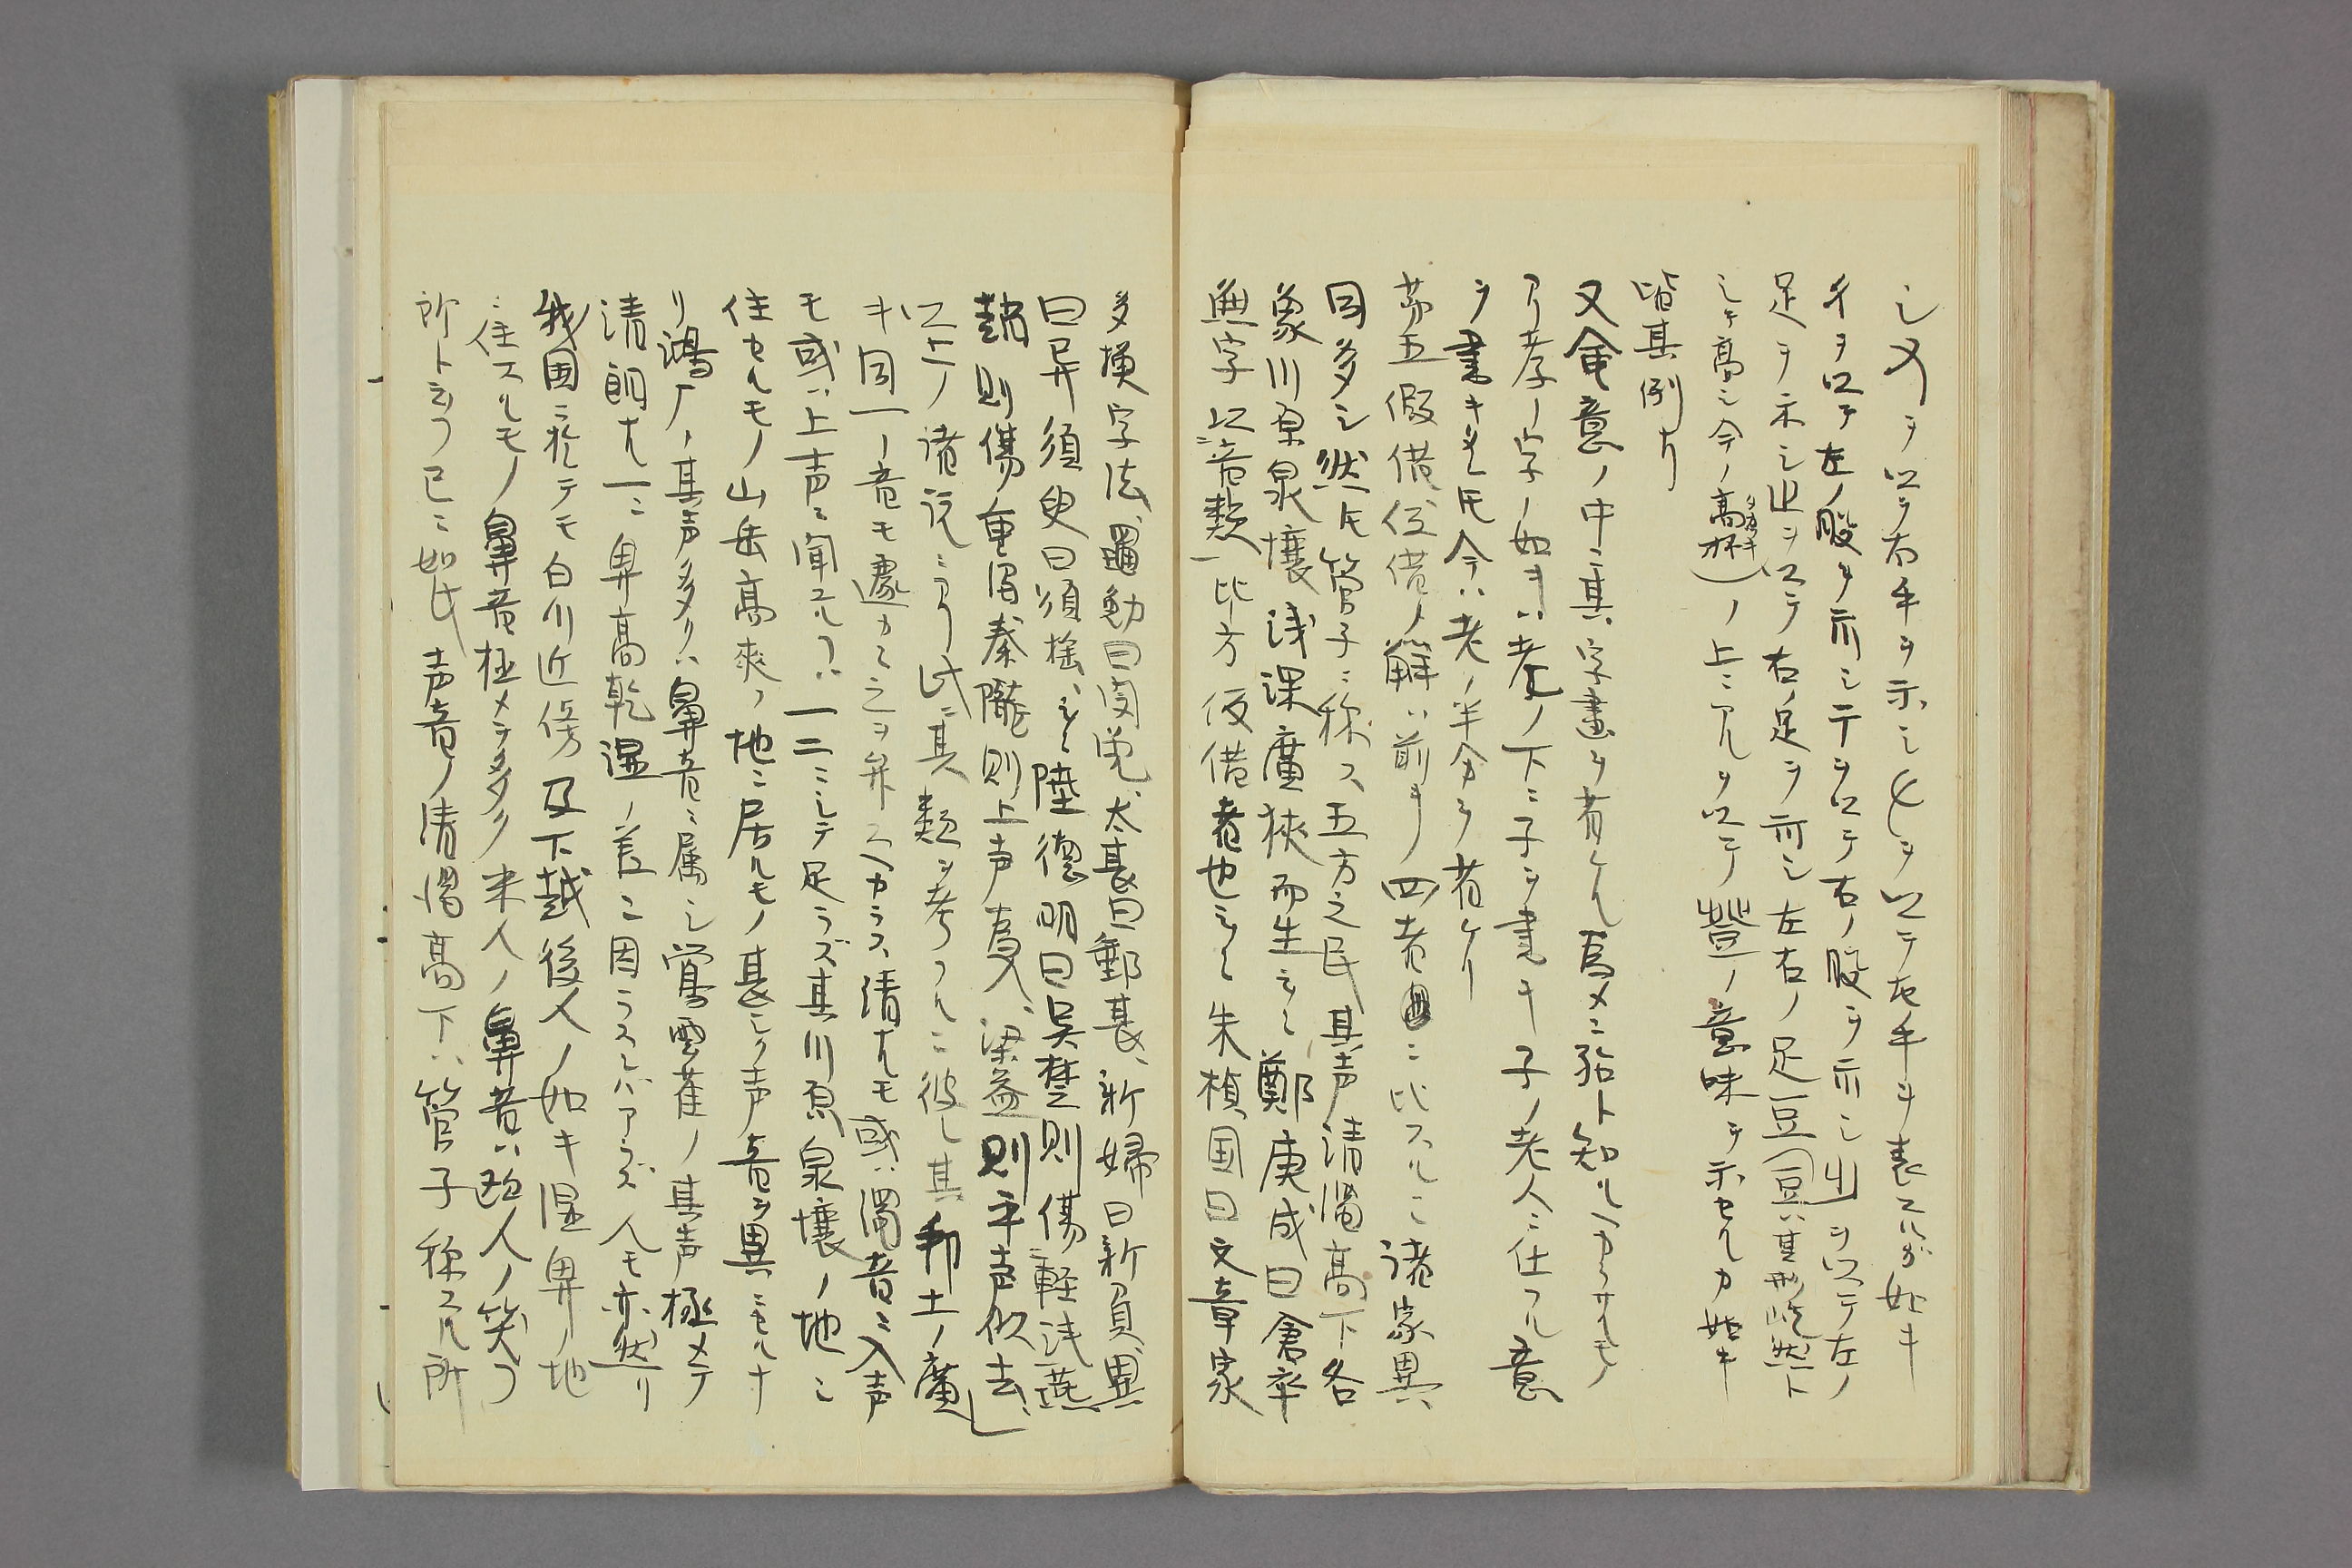 シ又ヲ以テ右手ヲ示シ𠂇ヲ以テ左手ヲ表スルガ如キ
イヲ以テ左ノ股ヲ示シテヲ以テ右ノ股ヲ示シ出ヲ以テ左ノ
足ヲ示シ止ヲ以テ右ノ足ヲ示シ左右ノ足豆(豆ハ其形屹然ト
シテ高シ今ノ高杯)ノ上ニアルヲ以テ豋ノ意味ヲ示セルカ如キ
タカツキ
皆其例ナリ
又會意ノ中ニ其字畫ヲ省ケル為メニ殆ト知ルヘカラサルモノ
アリ孝ノ字ノ如キハ老ノ下ニ子ヲ書キ子ノ老人ニ仕フル意
ヲ書キシモ今ハ老ノ半分ヲ省ケリ
第五假借仮借ノ解ハ前キノ四者ニ比スルニ諸家異
同多シ然トモ管子ニ称ス五方之民其声清濁高下各
象川原泉壤浅深廣狭而生云々鄭康成曰倉卒
無字以音類比方仮借者也云々朱楨国曰文章家
多換字法邇動曰閔免、太甚曰郵甚、新婦曰新負、異
曰异須臾曰須搖、云々陸德明曰吳楚則傷輕浅燕
趙則傷重濁秦隴則上声為入、梁益則平声似去」
以上ノ諸説ニアリ此ニ其類ヲ考フルニ彼レ其邦土ノ廣
キ同一ノ音モ遽カニ之ヲ弁スヘカラス清ナルモ或ハ濁音ニ入声
モ或ハ上声ニ聞エルヿハ一二ニシテ足ラズ其川原泉壤ノ地ニ
住セルモノ山岳高爽ノ地ニ居ルモノ甚シク声音ヲ異ニセルナ
リ鴻厂ノ其声多クハ鼻音ニ属シ鶯雲雀ノ其声極メテ
清朗ナル一ニ卑高乾湿ノ差ニ因ラスンバアラズ人モ亦然リ
我国ニ於テモ白川近傍及下越後人ノ如キ湿卑ノ地
ニ住スルモノ鼻音極メテ多ク米人ノ鼻音ハ欧人ノ笑フ
所ト云フ已ニ如此声音ノ清濁高下ハ管子称スル所